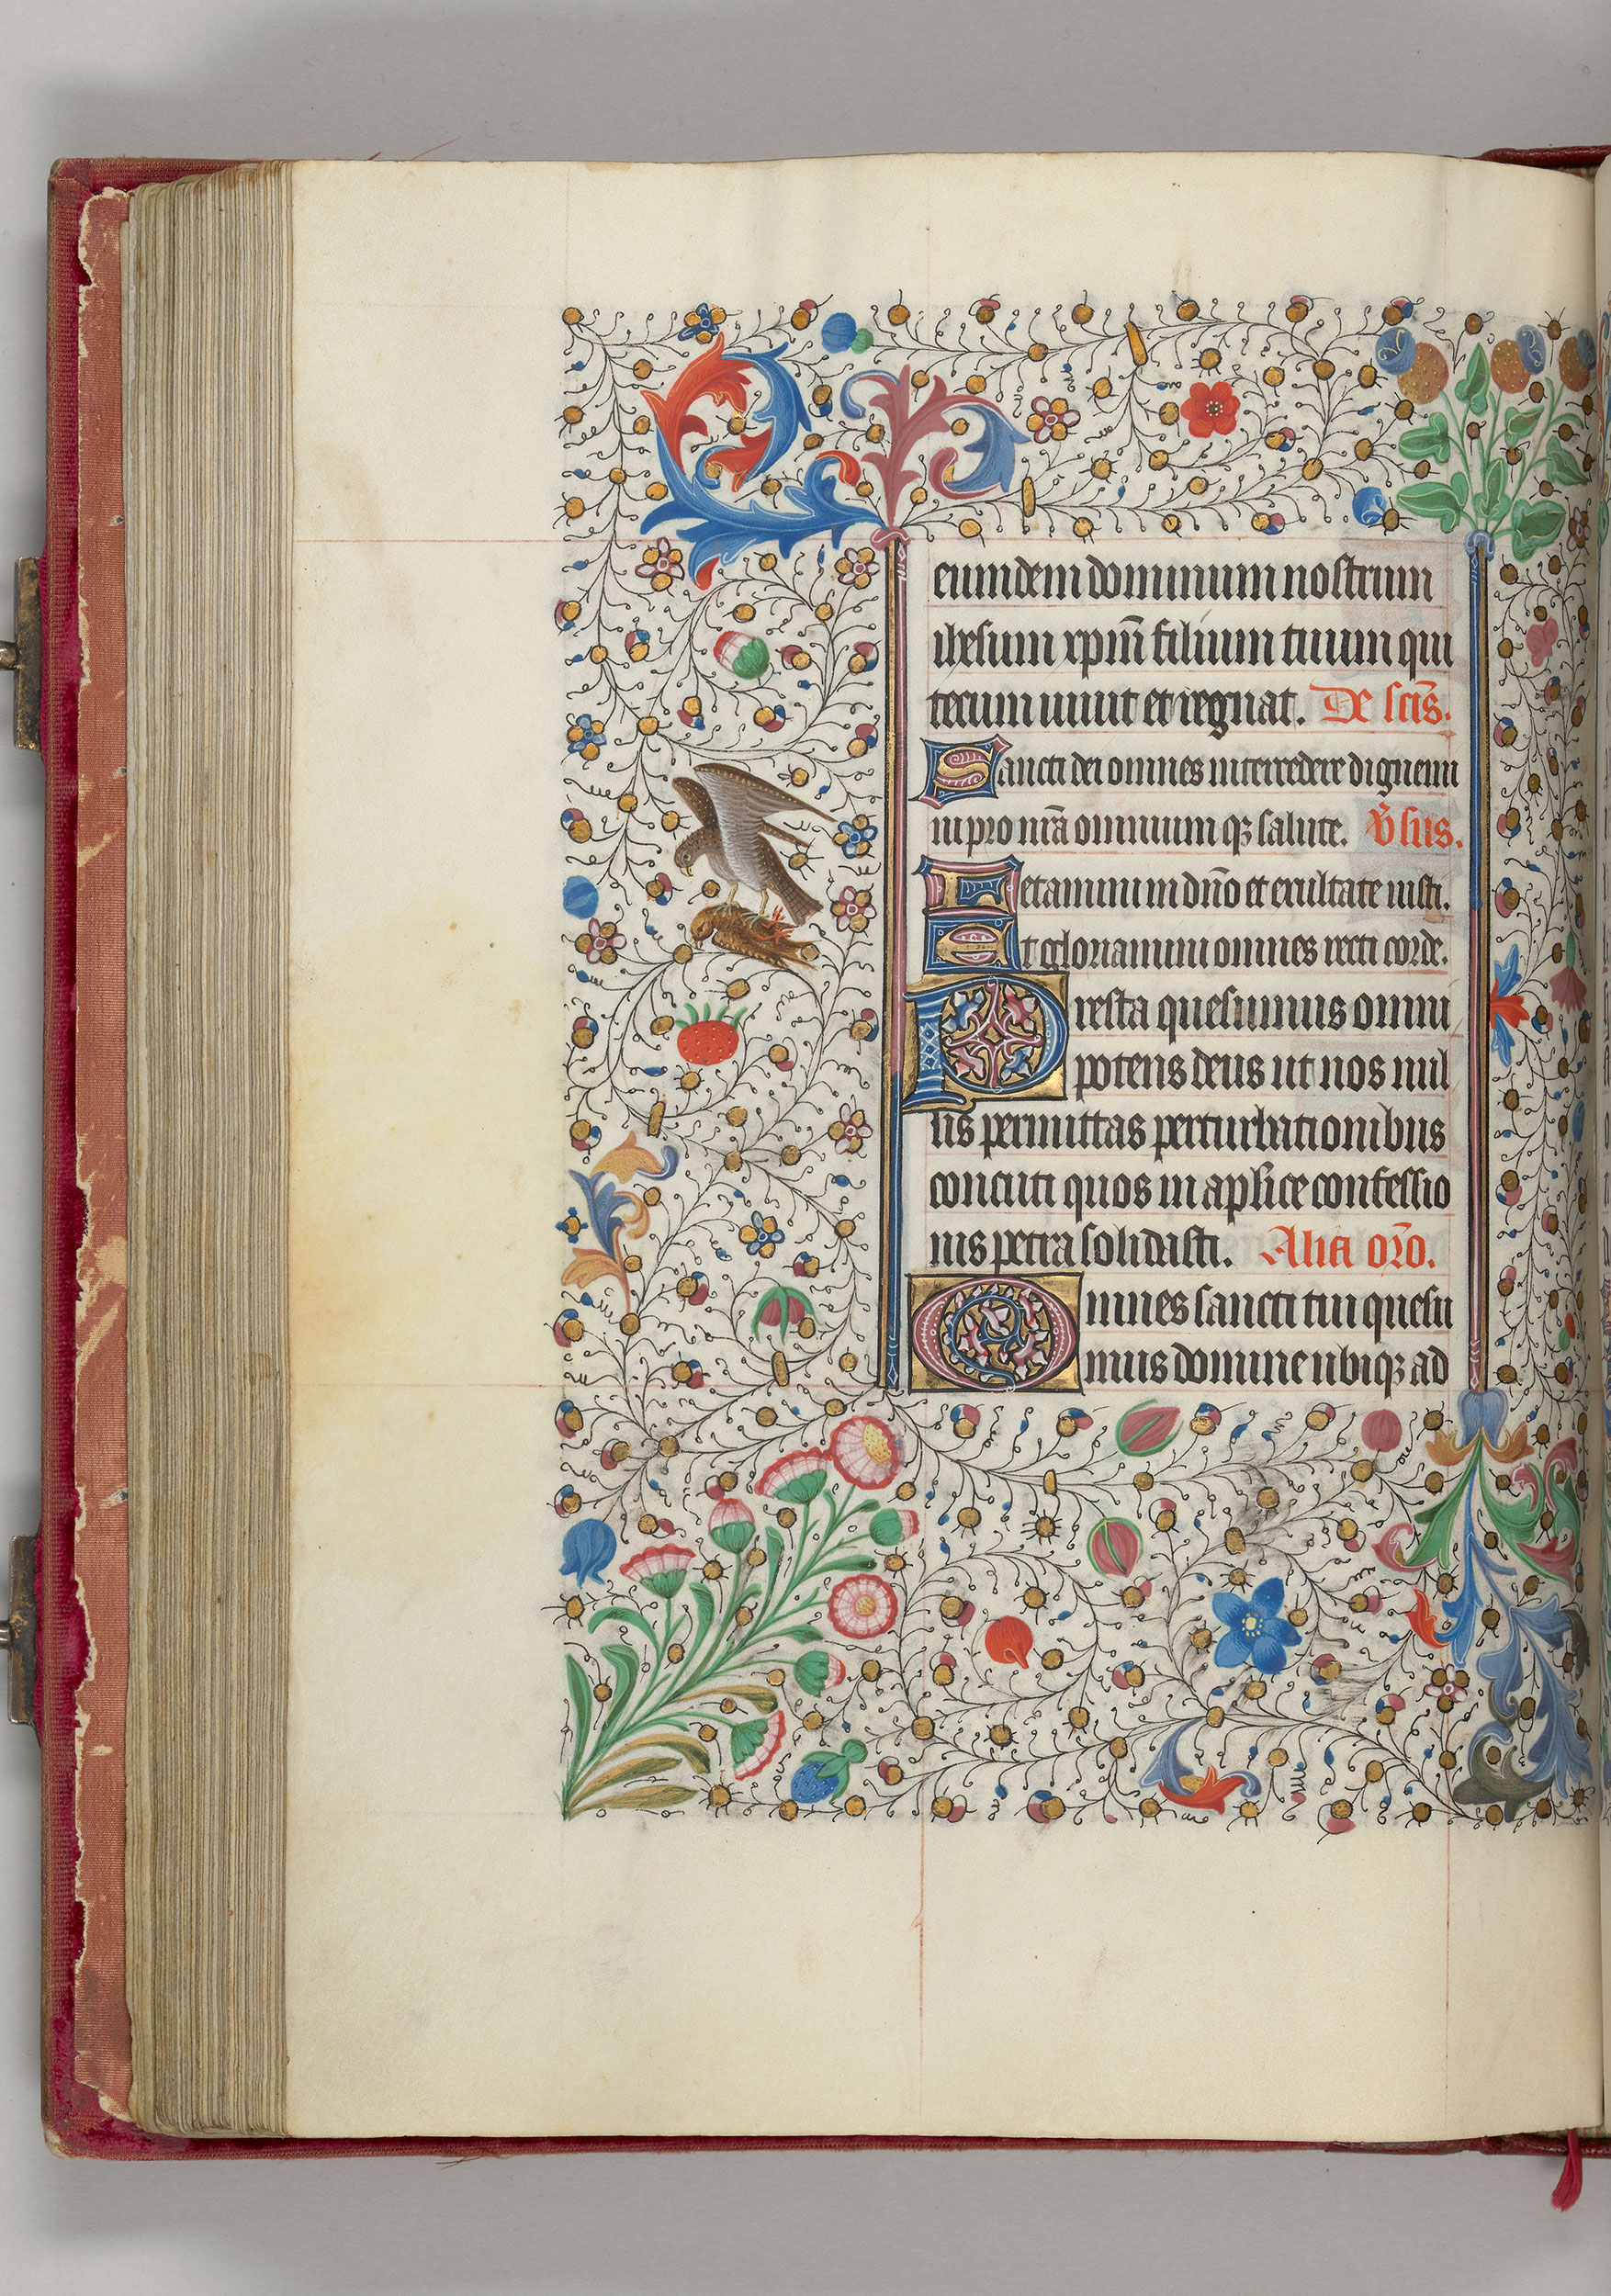 eiundem dominum nostrum
ihesum xpm̄ filium tuum qui
tecum uiuit et regnat. De scīs.
Sancti dei omnes intercedere dignemi
ni pro nr̄a omnium qꝫ salute. v̄sus.
Letamini in dn̄o et exultate iusti.
Et gloriamini omnes recti corde.
Presta quesumus omni
potens deus ut nos nul
lis permittas perturbationibus
concuti quos in aplice confessio
nis petra solidasti. Alia or̄o.
Omnes sancti tui quesu
mus domine ubiqꝫ ad